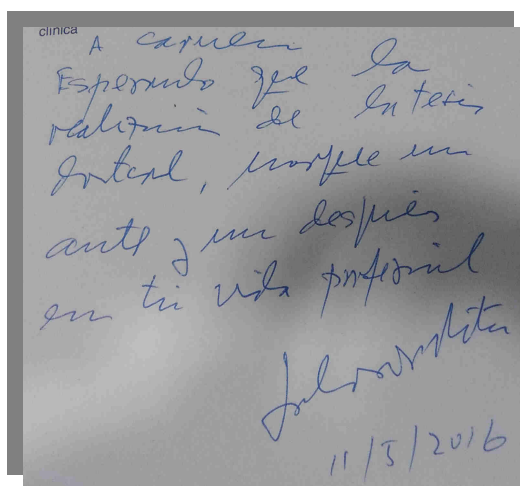 clínica
A Carmen
Esperando que la
realización de la tesis
doctoral, marque un
ante y un después
en tu vida profesional
11/5/2016